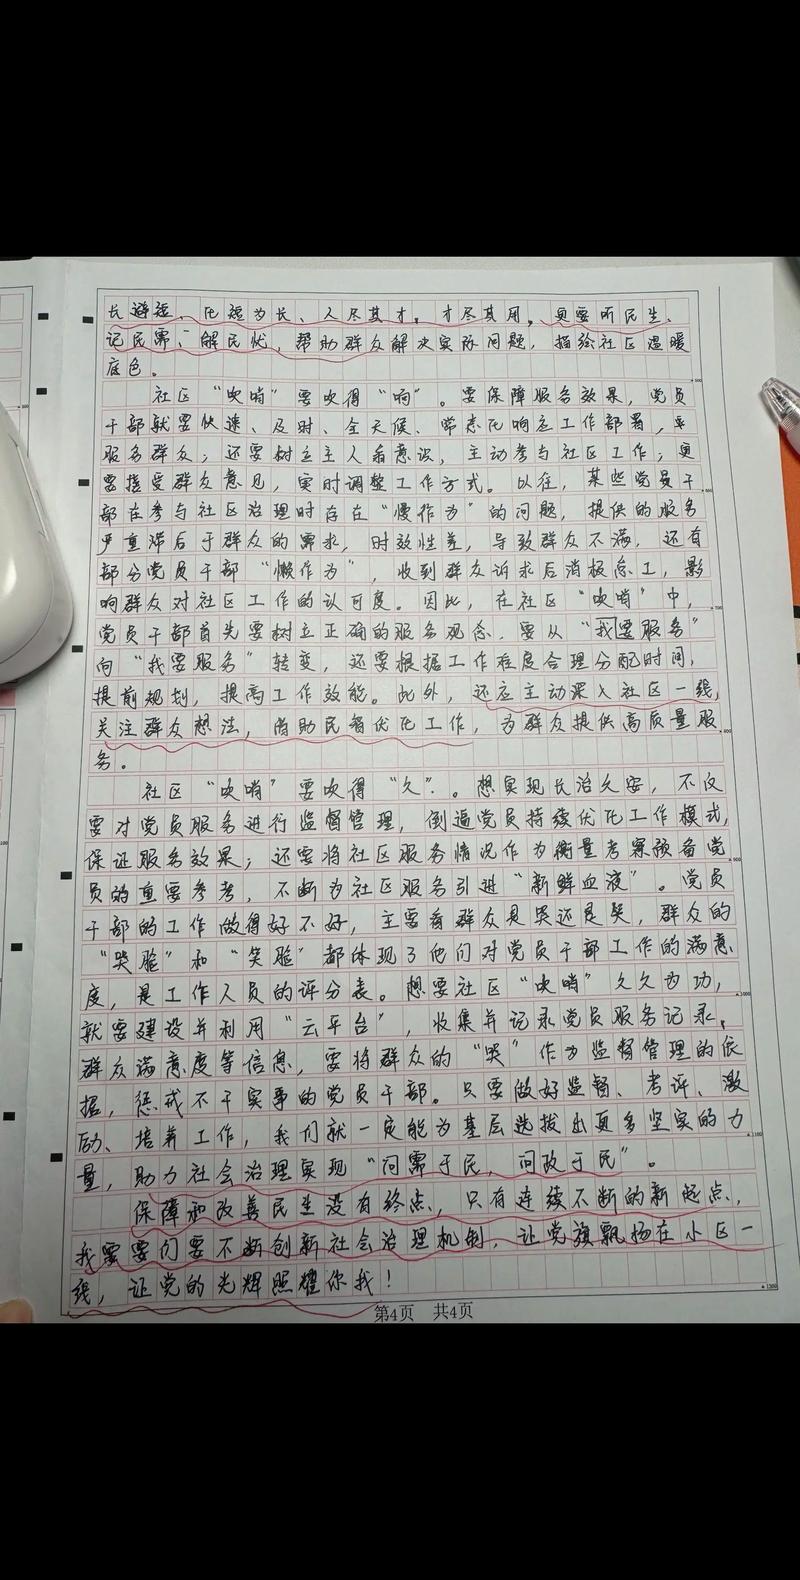 长避短、化短为长、人尽其才，才尽其用，更要听民生、
记民需、解民忧，帮助群众解决实际问题，描绘社区温暖
底色。
社区“吹哨”要吹得“响”。要保障服务效果，党员
干部就要快速、及时、全天候、常态化响应工作部署，
服务群众；还要树立主人翁意识，主动参与社区工作；更
要接受群众意见，实时调整工作方式。以往，某些党员干
部在参与社区治理时存在“慢作为”的问题，提供的服务
严重滞后于群众的需求，时效性差，导致群众不满，还有
部分党员干部“懒作为”，收到群众诉求后消极怠工，影
响群众对社区工作的认可度。因此，在社区“吹哨”中，
党员干部首先要树立正确的服务观念，要从“我要服务”
向“我要服务”转变，还要根据工作难度合理分配时间，
提前规划，提高工作效能。此外，还应主动深入社区一线，
关注群众想法，借助民智优化工作，为群众提供高质量服
务。
社区“吹哨”要吹得“久”。想实现长治久安，不仅
要对党员服务进行监督管理，倒逼党员持续优化工作模式，
保证服务效果；还要将社区服务情况作为衡量考察预备党
员的重要参考，不断为社区服务引进“新鲜血液”。党员
干部的工作做得好不好，主要看群众是哭还是笑，群众的
“哭脸”和“笑脸”都体现了他们对党员干部工作的满意
度，是工作人员的评分表。想要社区“吹哨”久久为功，
就要建设并利用“云平台”，收集并记录党员服务记录，
群众满意度等信息，要将群众的“哭”作为监督管理的依
据，惩戒不干实事的党员干部。只要做好监督、考评、激
励、培养工作，我们就一定能为基层选拔出更多坚实的力
量，助力社会治理实现“问需于民，问政于民”。
保障和改善民生没有终点，只有连续不断的新起点，
我们要不断创新社会治理机制，让党旗飘扬在小区一
线，让党的光辉照耀你我！
第4页 共4页